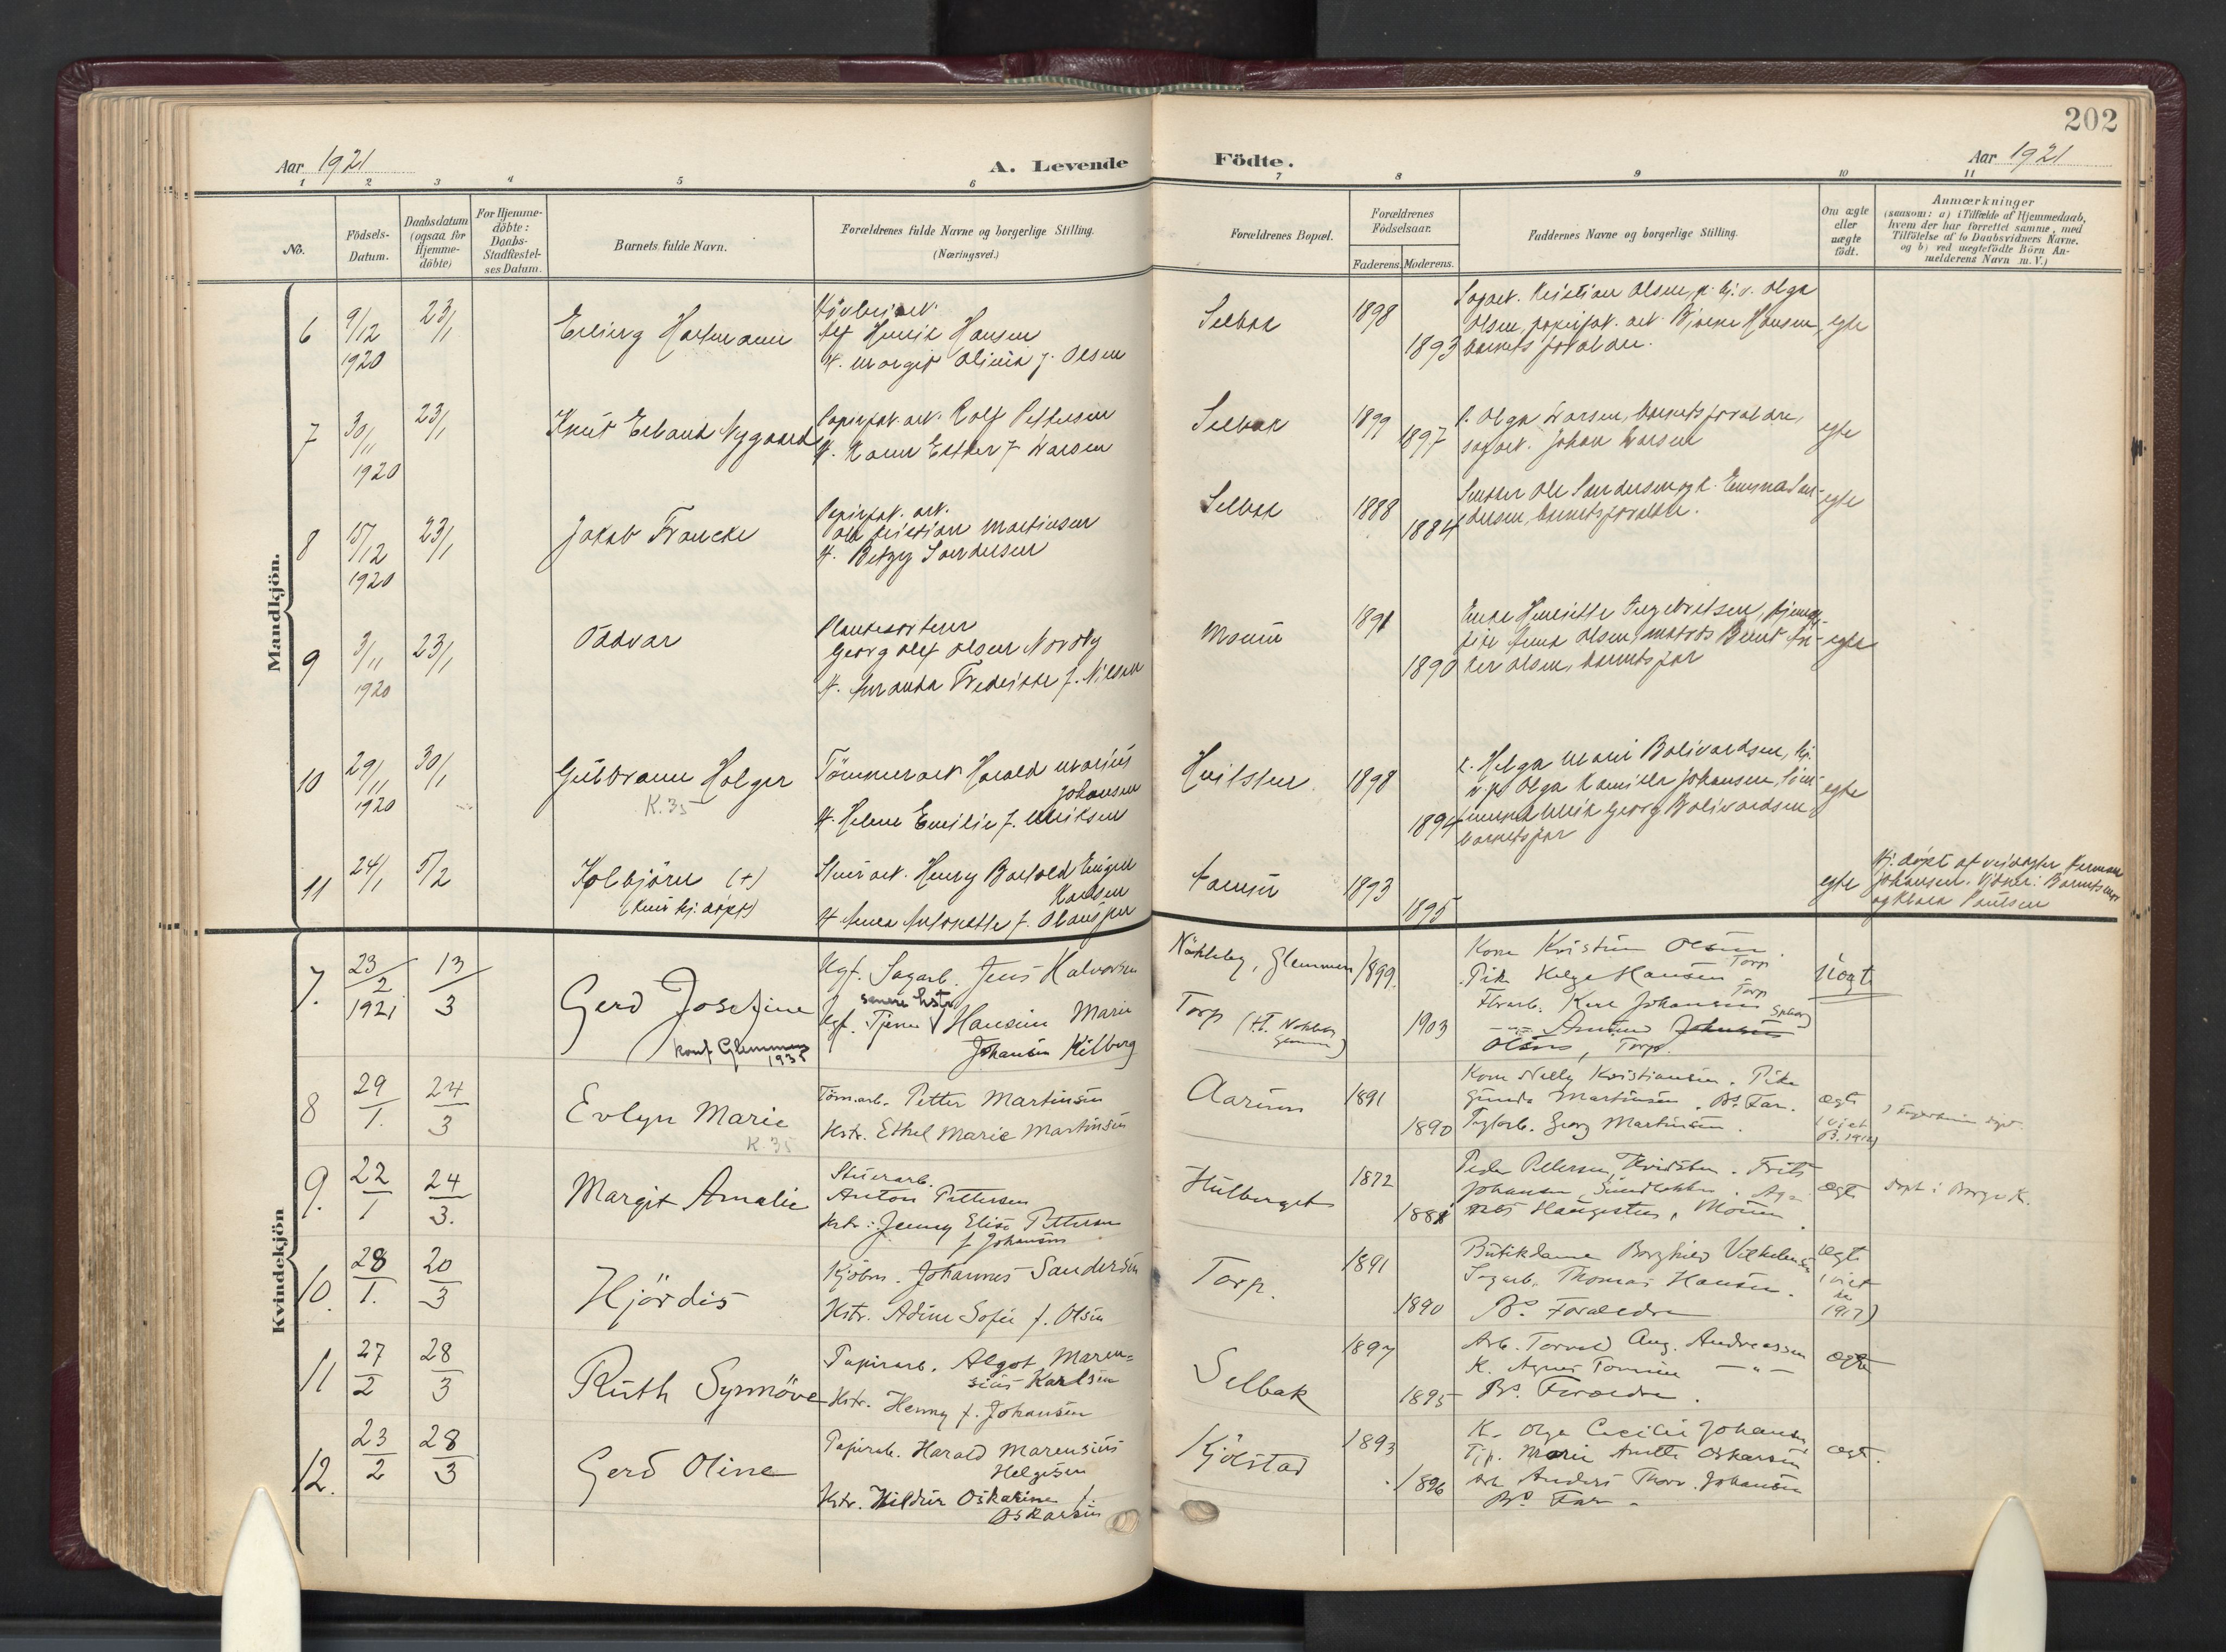 202
Aar 1921
A. Levende
Födte.
Aar 1921
1 2 3 4 5 6 7 8 9 10 11
No.
Födsels-
Datum.
Daabsdatum
(ogsaa for
Hjemme-
döbte)
For Hjemme-
döbte:
Daabs-
Stadfæstel-
ses Datum.
Barnets fulde Navn.
Forældrenes fulde Navne og borgerlige Stilling.
(Næringsvei.)
Forældrenes Bopæl.
Forældrenes
Födselsaar.
Faderens. Moderens.
Faddernes Navne og borgerlige Stilling.
Om ægte
eller
uægte
födt.
Anmærkninger
(saasom: a) i Tilfælde af Hjemmedaab,
hvem der har forrettet samme, med
Tilföielse af to Daabsvidners Navne.
og b) ved uægtefödte Börn An-
melderens Navn m. V.)
Mandkjön.
6
9/12
1920
23/1
Erling Hartmann
Alf Henrik Hansen
H. Margit Olivia f. Olsen
Selbak
1898
1893
Sagarb. Kristian Olsen, Olga
Olsen, papirfab. arb. Bjarne Hansen,
barnets forældre.
egte
7
30/11
1920
23/1
Knut Erland Nygaard
Papirfab. arb. Rolf Pettersen
H. Karen Esther f. Larsen
Selbak
1899
1897
K. Olga Larsen, barnets forældre,
sagarb. Johan Larsen
egte
8
15/12
1920
23/1
Jakob Francke
Papirfab. arb.
Ole Kristian Martinsen
H. Betzy Sandersen
Selbak
1888
1884
Ole Sandersen og k. Emma San-
dersen, barnets forældre.
egte
9
3/11
1920
23/1
Oddvar
Plankesorterer
Georg Olaf Olsen Nordby
H. Amanda Fredrikke f. Nilsen
Moum
1891
1890
Enke Henriette Ingebretsen, hjemmev.
pike Anna Olsen, matros Bernt An-
ker Olsen, barnets far
egte
10
29/11
1920
30/1
Guldbrann Holger
K. 35
Tömmerarb. Harald Marius
Johansen
H. Helene Emilie f. Eriksen
Hvilsten
1898
1894
K. Helga Marie Bolivardsen, hj.
v. p. Olga Kamilla Johansen,
Georg Bolivardsen,
barnets far
egte
11
24/1
5/2
Kolbjörn (+)
(kun hj. döpt)
Stuerarb. Henry Bartold Eugen
Karlsen
H. Anna Antonette f. Olausen
Aarum
1893
1895
egte
Hj. döpt af veivogter Herman
Johansen. Vidner: Barnets mor
og Klara Paulsen
Kvindekjön
7.
23/2
1921
13/3
Gerd Josefine
konf. Glemmen
1935
Ugf. Sagarb. Jens Halvorsen
senere hstr.
Ugf. Tjener Hansine Marie
Johansen Kilberg
Nökleby, Glemmen
Torp (tt. Nökleby
Glemmen)
1899.
1903
Kone Kristine Olsen
Torp
Pike Helga Hansen Torp
Karl Johansen
Amund Johansen
Olsen, Torp.
Uegt
8
29/1.
24/3
Evlyn Marie
K. 35
Töm.arb. Petter Martinsen
Hstr. Ethel Marie Martinsen
Aarum
1891
1890
Kone Nelly Kristiansen. Pike
Gunda Martinsen. Bs. Far.
Teglarb. Georg Martinsen.
ægte
(viet
1912)
9.
22/1
24/3.
Margit Amalie
Stuerarb.
Anton Pettersen
Hstr: Jenny Elise Pettersen
f. Johansen
Hulberget
1872
1881
Peder Pettersen, Hvidsten. Frits
Johansen, Sundlökka.
Haugsten, Moum.
ægte
Döpt i Borge K.
10.
28/1.
20/3
Hjördis
Kjöbm. Johannes Sandersen
Hstr. Adine Sofie f. Olsen
Torp.
1891
1890
Butikdame Borghild Vilhelmsen
Sagarb. Thomas Hansen.
Bs. Forældre
ægte
(viet
1917)
11
27/2
28/3
Ruth Synnöve
Papirarb. Algot Maren=
sius Karlsen
Hstr. Henny f. Johansen
Selbak
1897
1895
Arb. Torvald Aug. Andreassen
K. Agnes Tomine — " —
Bs. Forældre.
ægte
12.
23/2
28/3
Gerd Oline
Papirarb. Harald Marensius
Helgesen
Hstr. Hildur Oskarine f.
Oskarsen
Kjölstad
1893
1896
K. Olga Cecilie Johansen
Tjp. Marie Anette Oskarsen
Arb. Anders Thorv. Johansen
Bs. Far.
ægt.